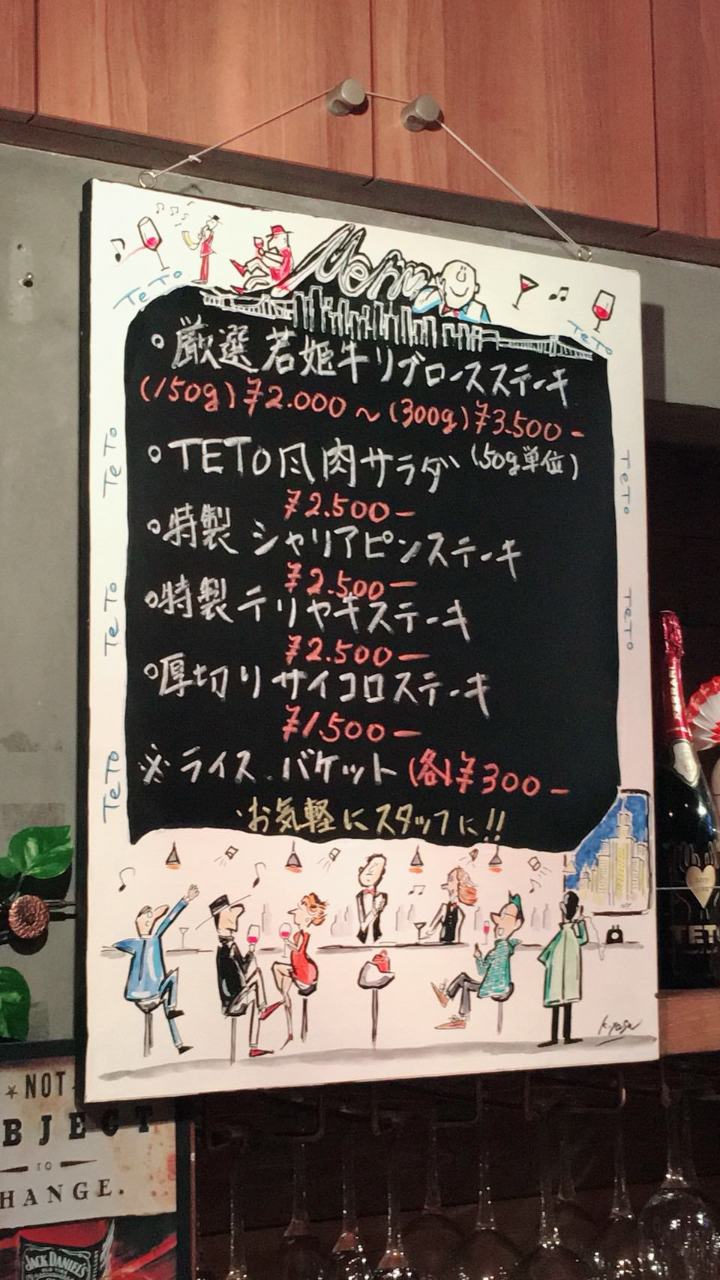 Menu
TeTo
TeTo
。厳選若姫牛リブロースステーキ
(150g)¥2.000～(300g)¥3.500-
。TETO風肉サラダ (50g単位)
¥2.500-
。特製 シャリアピンステーキ
¥2.500-
。特製テリヤキステーキ
¥2.500-
。厚切りサイコロステーキ
¥1.500-
※ライス.バケット(各)¥300-
お気軽にスタッフに!!
TeTo
TeTo
TeTo
TeTo
TeTo
FERRARI
TET
NOT
BJECT
TO
HANGE.
JACK DANIEL'S